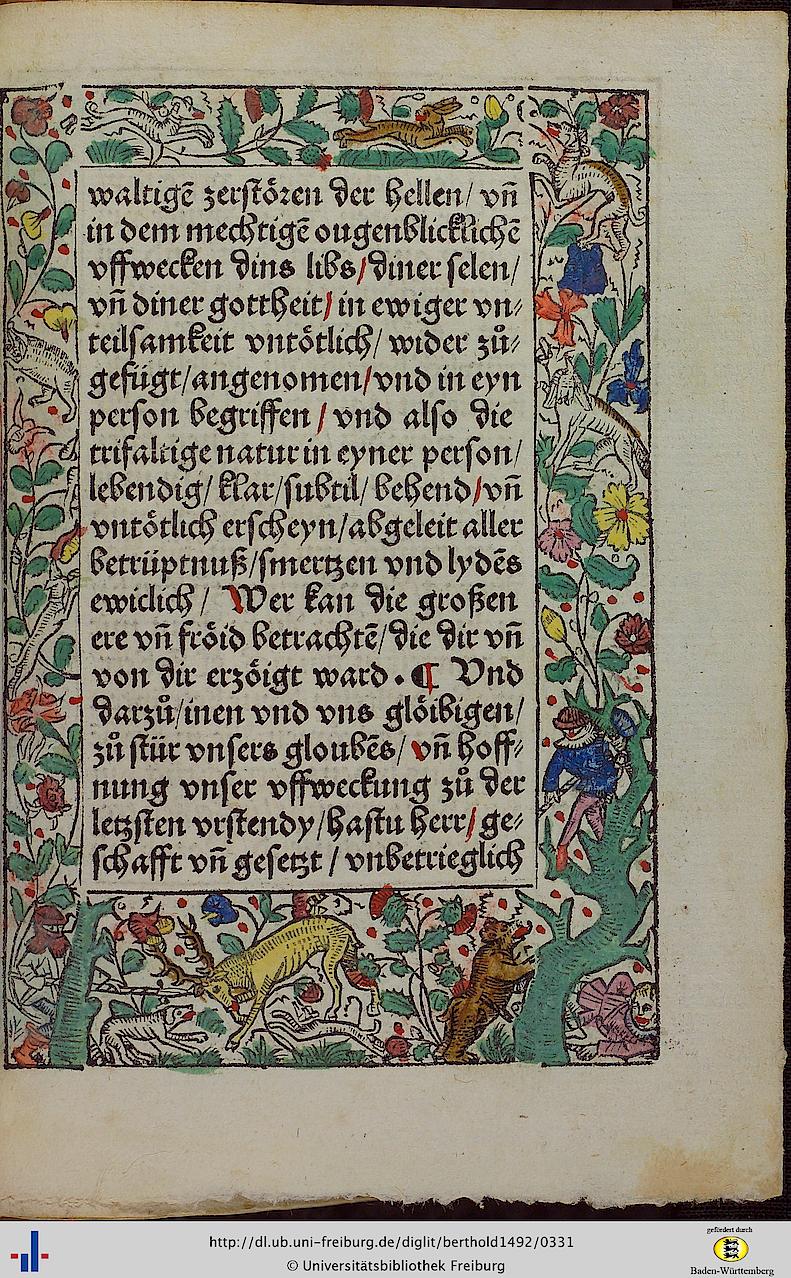 waltigē zerstören der hellen / vn̄
in dem mechtigē ougenblicklichē
vffwecken dins libs / diner selen /
vn̄ diner gottheit / in ewiger vn⸗
teilsamkeit vntötlich / wider zů⸗
gefügt / angenomen / vnd in eyn
person begriffen / vnd also die
trifaltige natur in eyner person /
lebendig / klar / subtil / behend / vn̄
vntötlich erscheyn / abgeleit aller
betrüptnuß / smertzen vnd lydēs
ewiclich / Wer kan die großen
ere vn̄ fröid betrachtē / die dir vn̄
von dir erzöigt ward . ¶ Vnd
darzů / inen vnd vns glöibigen /
zů stür vnsers gloubēs / vn̄ hoff⸗
nung vnser vffweckung zů der
letzsten vrstendy / hastu herr / ge⸗
schafft vn̄ gesetzt / vnbetrieglich
http://dl.ub.uni-freiburg.de/diglit/berthold1492/0331
© Universitätsbibliothek Freiburg
gefördert durch
Baden-Württemberg